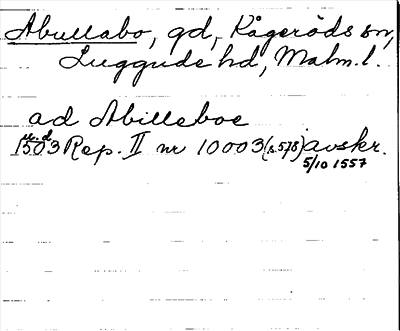 Abullabo, gd, Kågeröds sn,
Luggude hd, Malm. l.
ad Abilleboe
u.d.
1503 Rep. II nr 10003 (s.578) avskr.
5/10 1557